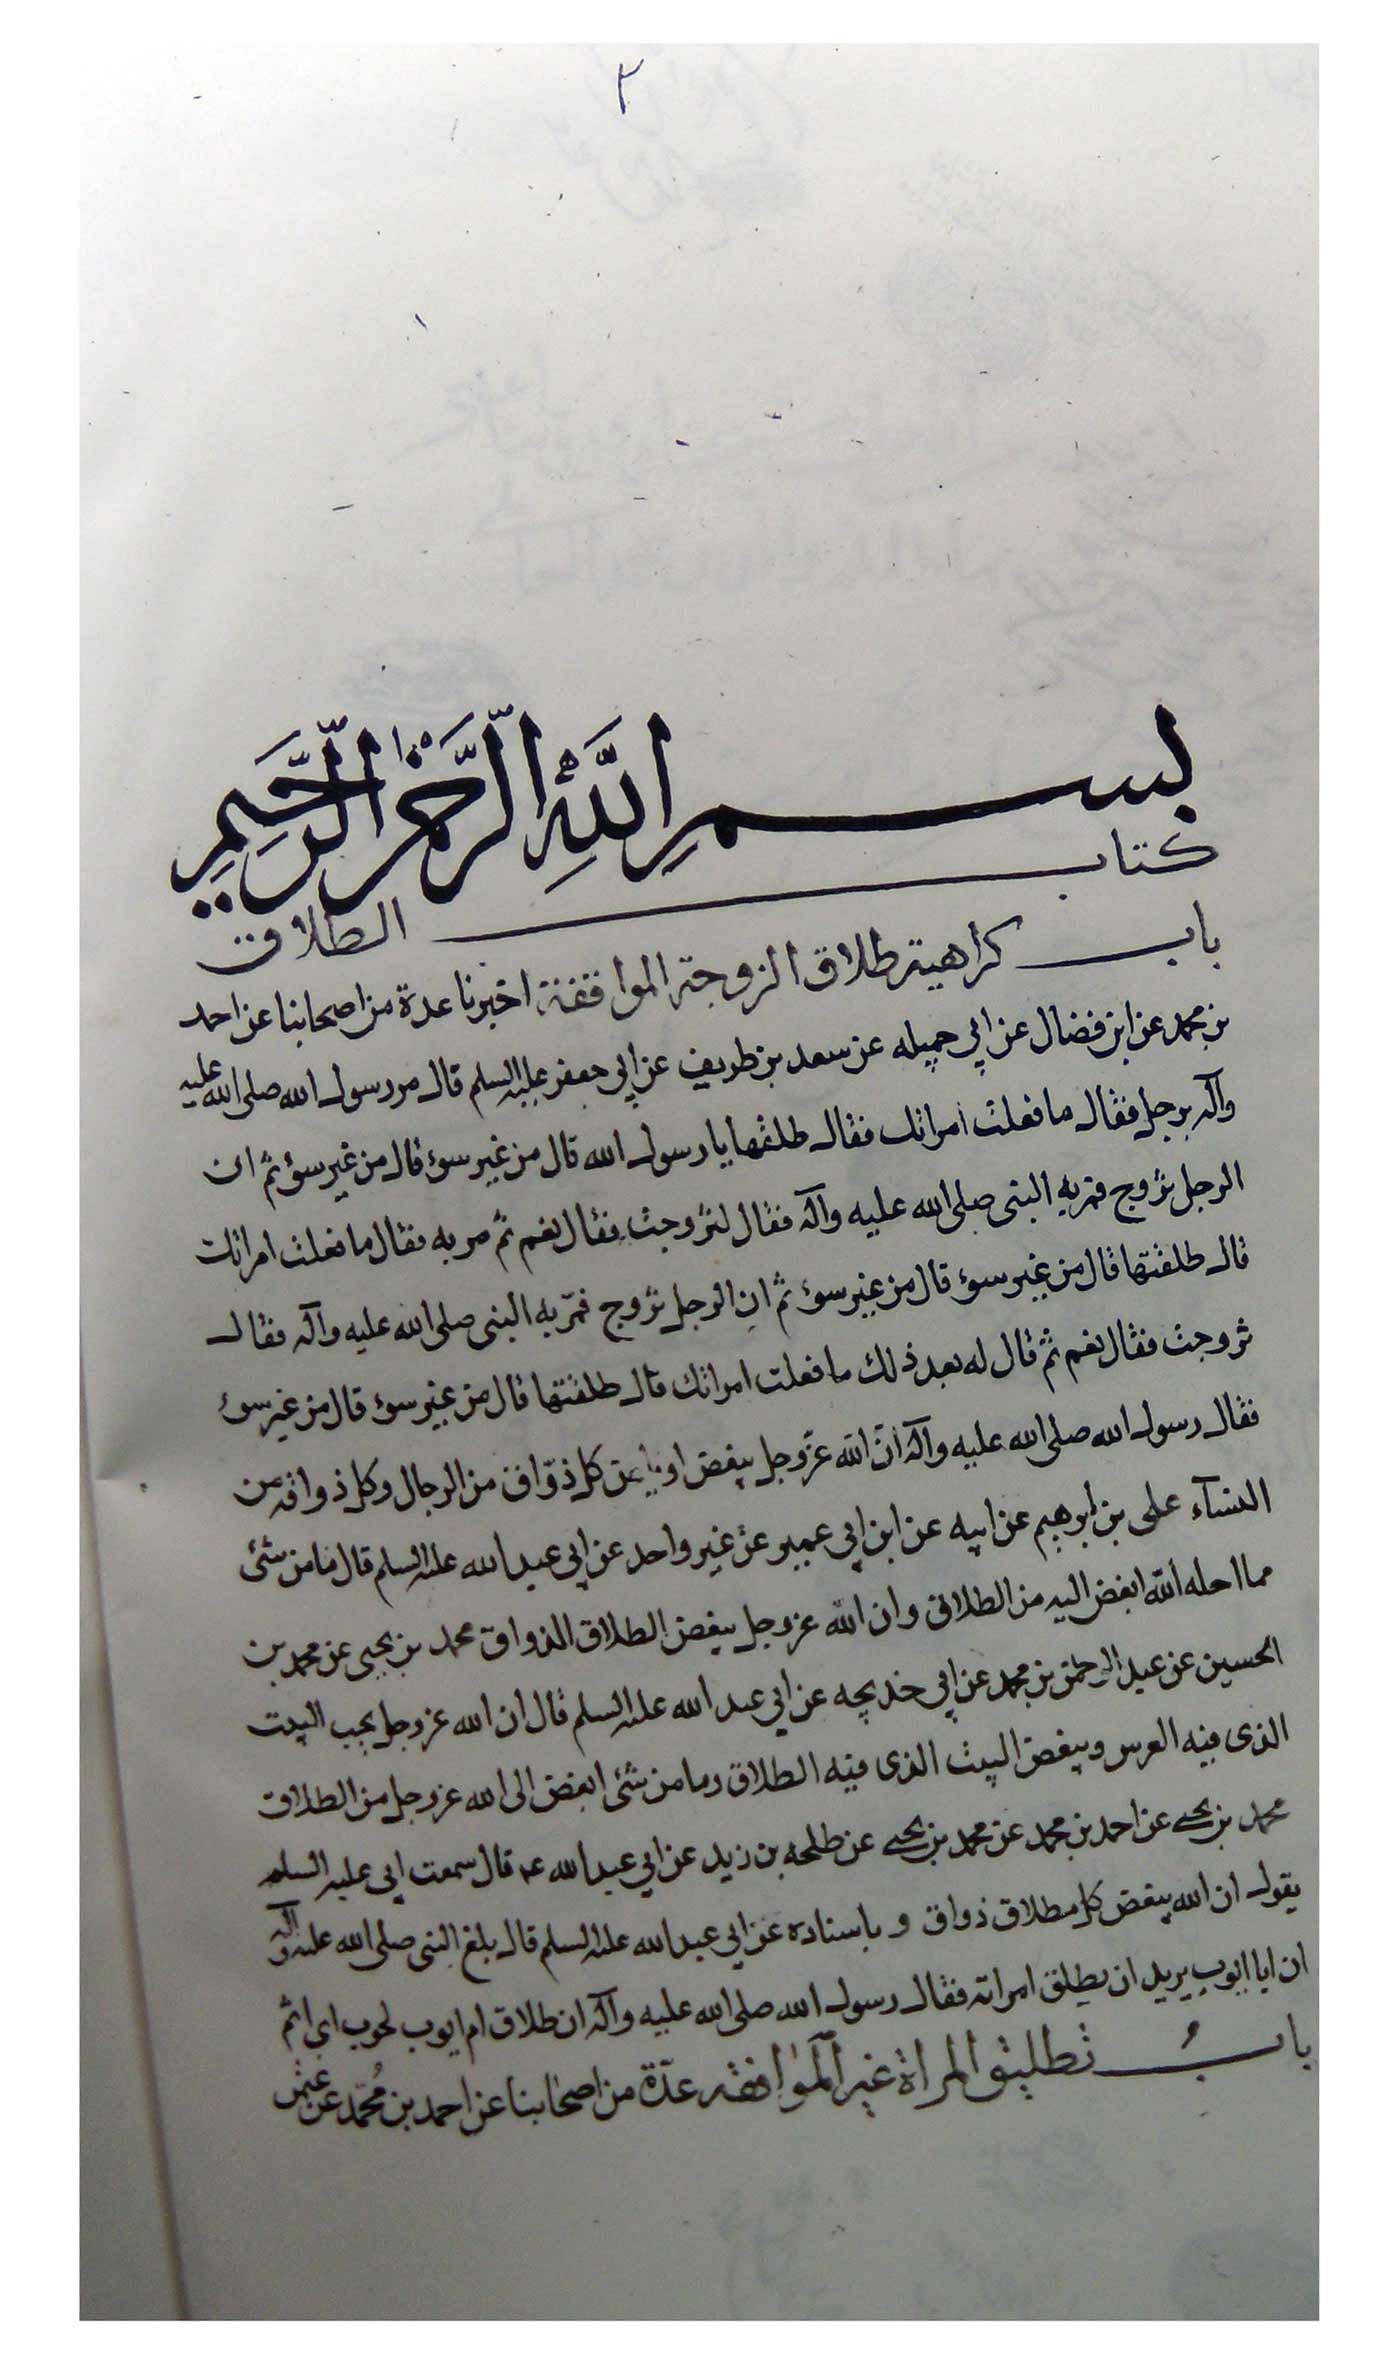 ٢
بسم اللَّهِ الرَّحمنِ الرَّحِيمِ
كتاب الطلاق
باب كراهية طلاق الزوجة الموافقة اخبرنا عدة من اصحابنا عن احمد
بن محمد عن ابن فضال عن ابي جميله عن سعد بن طريف عن ابي جعفر عليه السلم قال مر رسول الله صلى الله عليه
وآله برجل فقال ما فعلت امراتك فقال طلقتها يا رسول الله قال من غير سوء قال من غير سوء ثم ان
الرجل تزوج فمر به النبى صلى الله عليه وآله فقال تزوجت فقال نعم ثم مر به فقال ما فعلت امراتك
قال طلقتها قال من غير سوء قال من غير سوء ثم ان الرجل تزوج فمرّ به النبى صلى الله عليه وآله فقال
تزوجت فقال نعم ثم قال له بعد ذلك ما فعلت امراتك قال طلقتها قال من غير سوء قال من غير سوء
فقال رسول الله صلى الله عليه وآله انّ الله عزّ وجل يبغض او يلعن كل ذوّاق من الرجال وكل ذواقه من
النسآء على بن ابرهيم عن ابيه عن ابن ابي عمير عن غير واحد عن ابي عبد الله عليه السلم قال ما من شئ
مما احله الله ابغض اليه من الطلاق وان الله عز وجل يبغض الطلاق الذواق محمد بن يحيى عن محمد بن
الحسين عن عبد الرحمن بن محمد عن ابي خديجه عن ابي عبد الله عليه السلم قال ان الله عز وجل يحب البيت
الذى فيه العرس ويبغض البيت الذى فيه الطلاق وما من شئ ابغض الى الله عز وجل من الطلاق
محمد بن يحيى عن احمد بن محمد عن محمد بن يحيى عن طلحه بن زيد عن ابي عبد الله عم قال سمعت ابي عليه السلم
يقول ان الله يبغض كل مطلاق ذواق و باسناده عن ابي عبد الله عليه السلم قال بلغ النبى صلى الله عليه وآله
ان ابا ايوب يريد ان يطلق امراته فقال رسول الله صلى الله عليه وآله ان طلاق ام ايوب لحوب اى اثم
بابُ تطليق المراة غير الموافقه عدّة من اصحابنا عن احمد بن مُحمّد عن عثمن